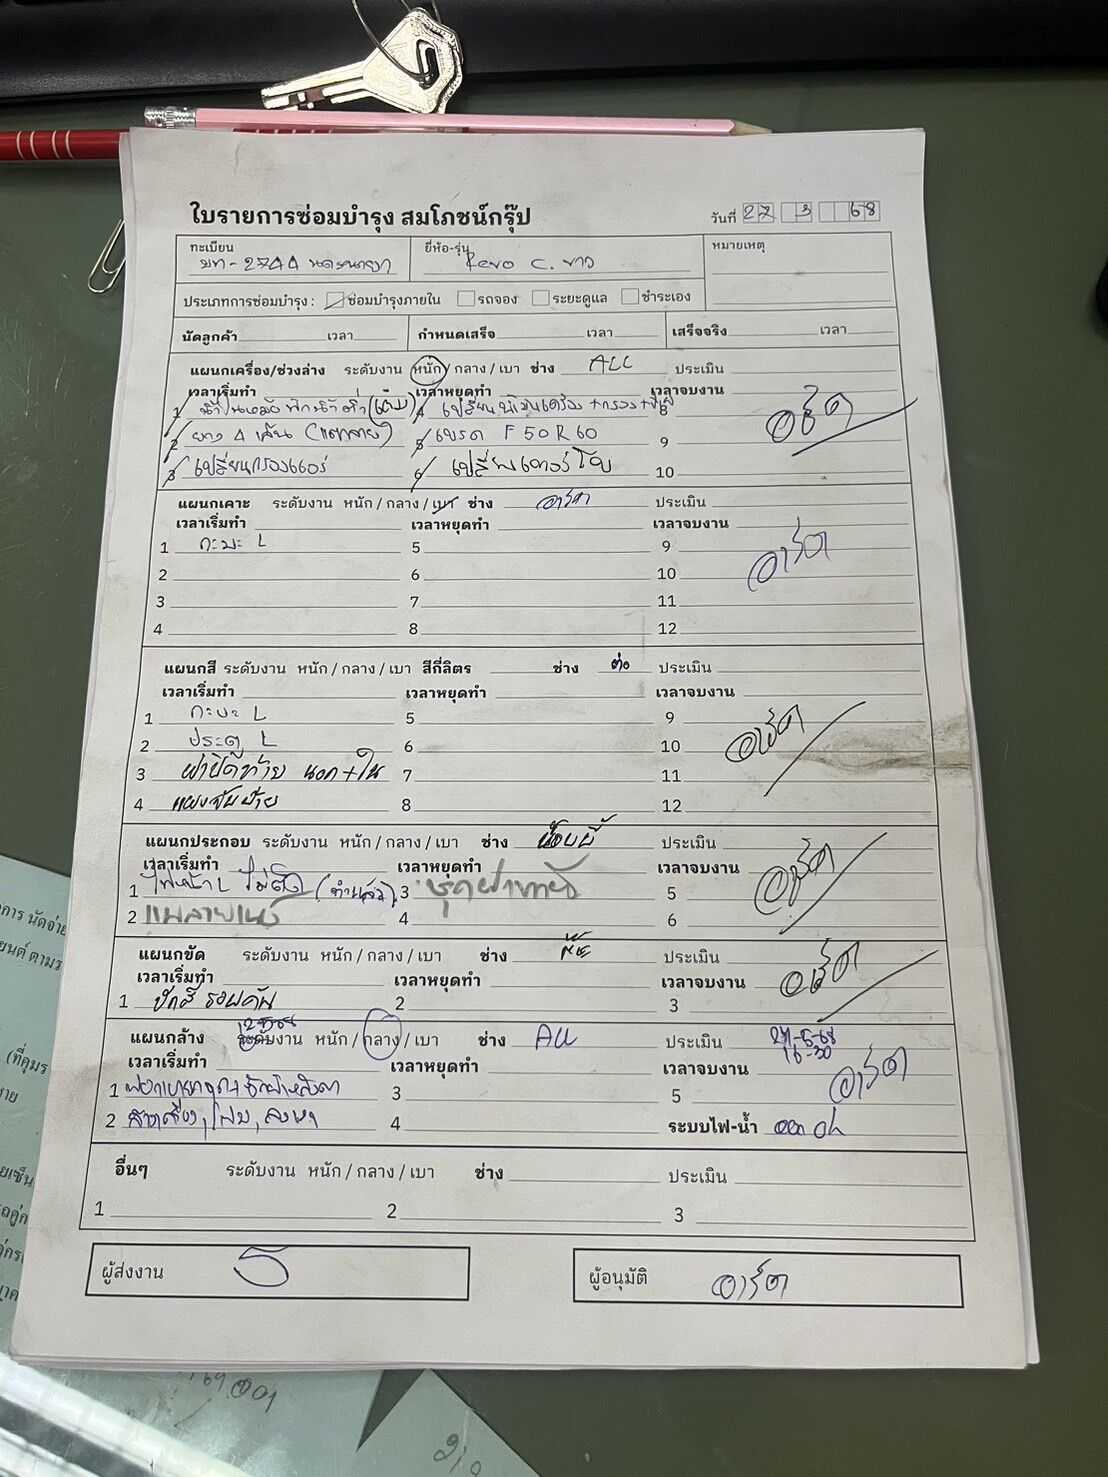 ใบรายการซ่อมบำรุง สมโภชน์กรุ๊ป
วันที่ 27 3 68
ทะเบียน 2744 นครนายก
ยี่ห้อ-รุ่น Revo C. ขาว
หมายเหตุ
ประเภทการซ่อมบำรุง : ซ่อมบำรุงภายใน รถจอง ระยะดูแล ชำระเอง
นัดลูกค้า เวลา กำหนดเสร็จ เวลา เสร็จจริง เวลา
แผนกเครื่อง/ช่วงล่าง ระดับงาน หนัก / กลาง / เบา ช่าง ALL ประเมิน
เวลาเริ่มทำ เวลาหยุดทำ เวลาจบงาน
1 4 เปลี่ยนน้ำมันเครื่อง+กรอง 8
2 ยาง 4 เส้น 5 เบรค F50 R60 9
3 เปลี่ยนกรองแอร์ 6 10
อาร์ต
แผนกเคาะ ระดับงาน หนัก / กลาง / เบา ช่าง อาร์ต ประเมิน
เวลาเริ่มทำ เวลาหยุดทำ เวลาจบงาน
1 กะบะ L 5 9
2 6 10
3 7 11
4 8 12
อาร์ต
แผนกสี ระดับงาน หนัก / กลาง / เบา สีกี่ลิตร ช่าง ต่อ ประเมิน
เวลาเริ่มทำ เวลาหยุดทำ เวลาจบงาน
1 กะบะ L 5 9
2 ประตู L 6 10
3 ฝาปิดท้าย นอก+ใน 7 11
4 8 12
อาร์ต
แผนกประกอบ ระดับงาน หนัก / กลาง / เบา ช่าง ประเมิน
เวลาเริ่มทำ เวลาหยุดทำ เวลาจบงาน
1 ไฟหน้า L ไม่ติด (ทำแล้ว) 3 ชุดฝาท้าย 5
2 4 6
อาร์ต
แผนกขัด ระดับงาน หนัก / กลาง / เบา ช่าง ประเมิน
เวลาเริ่มทำ เวลาหยุดทำ เวลาจบงาน
1 ขัดสี รอบคัน 2 3
อาร์ต
แผนกล้าง ระดับงาน หนัก / กลาง / เบา ช่าง All ประเมิน
เวลาเริ่มทำ เวลาหยุดทำ เวลาจบงาน 16-30
1 3 5
2 4 ระบบไฟ-น้ำ
อาร์ต
อื่นๆ ระดับงาน หนัก / กลาง / เบา ช่าง ประเมิน
1 2 3
ผู้ส่งงาน
ผู้อนุมัติ อาร์ต